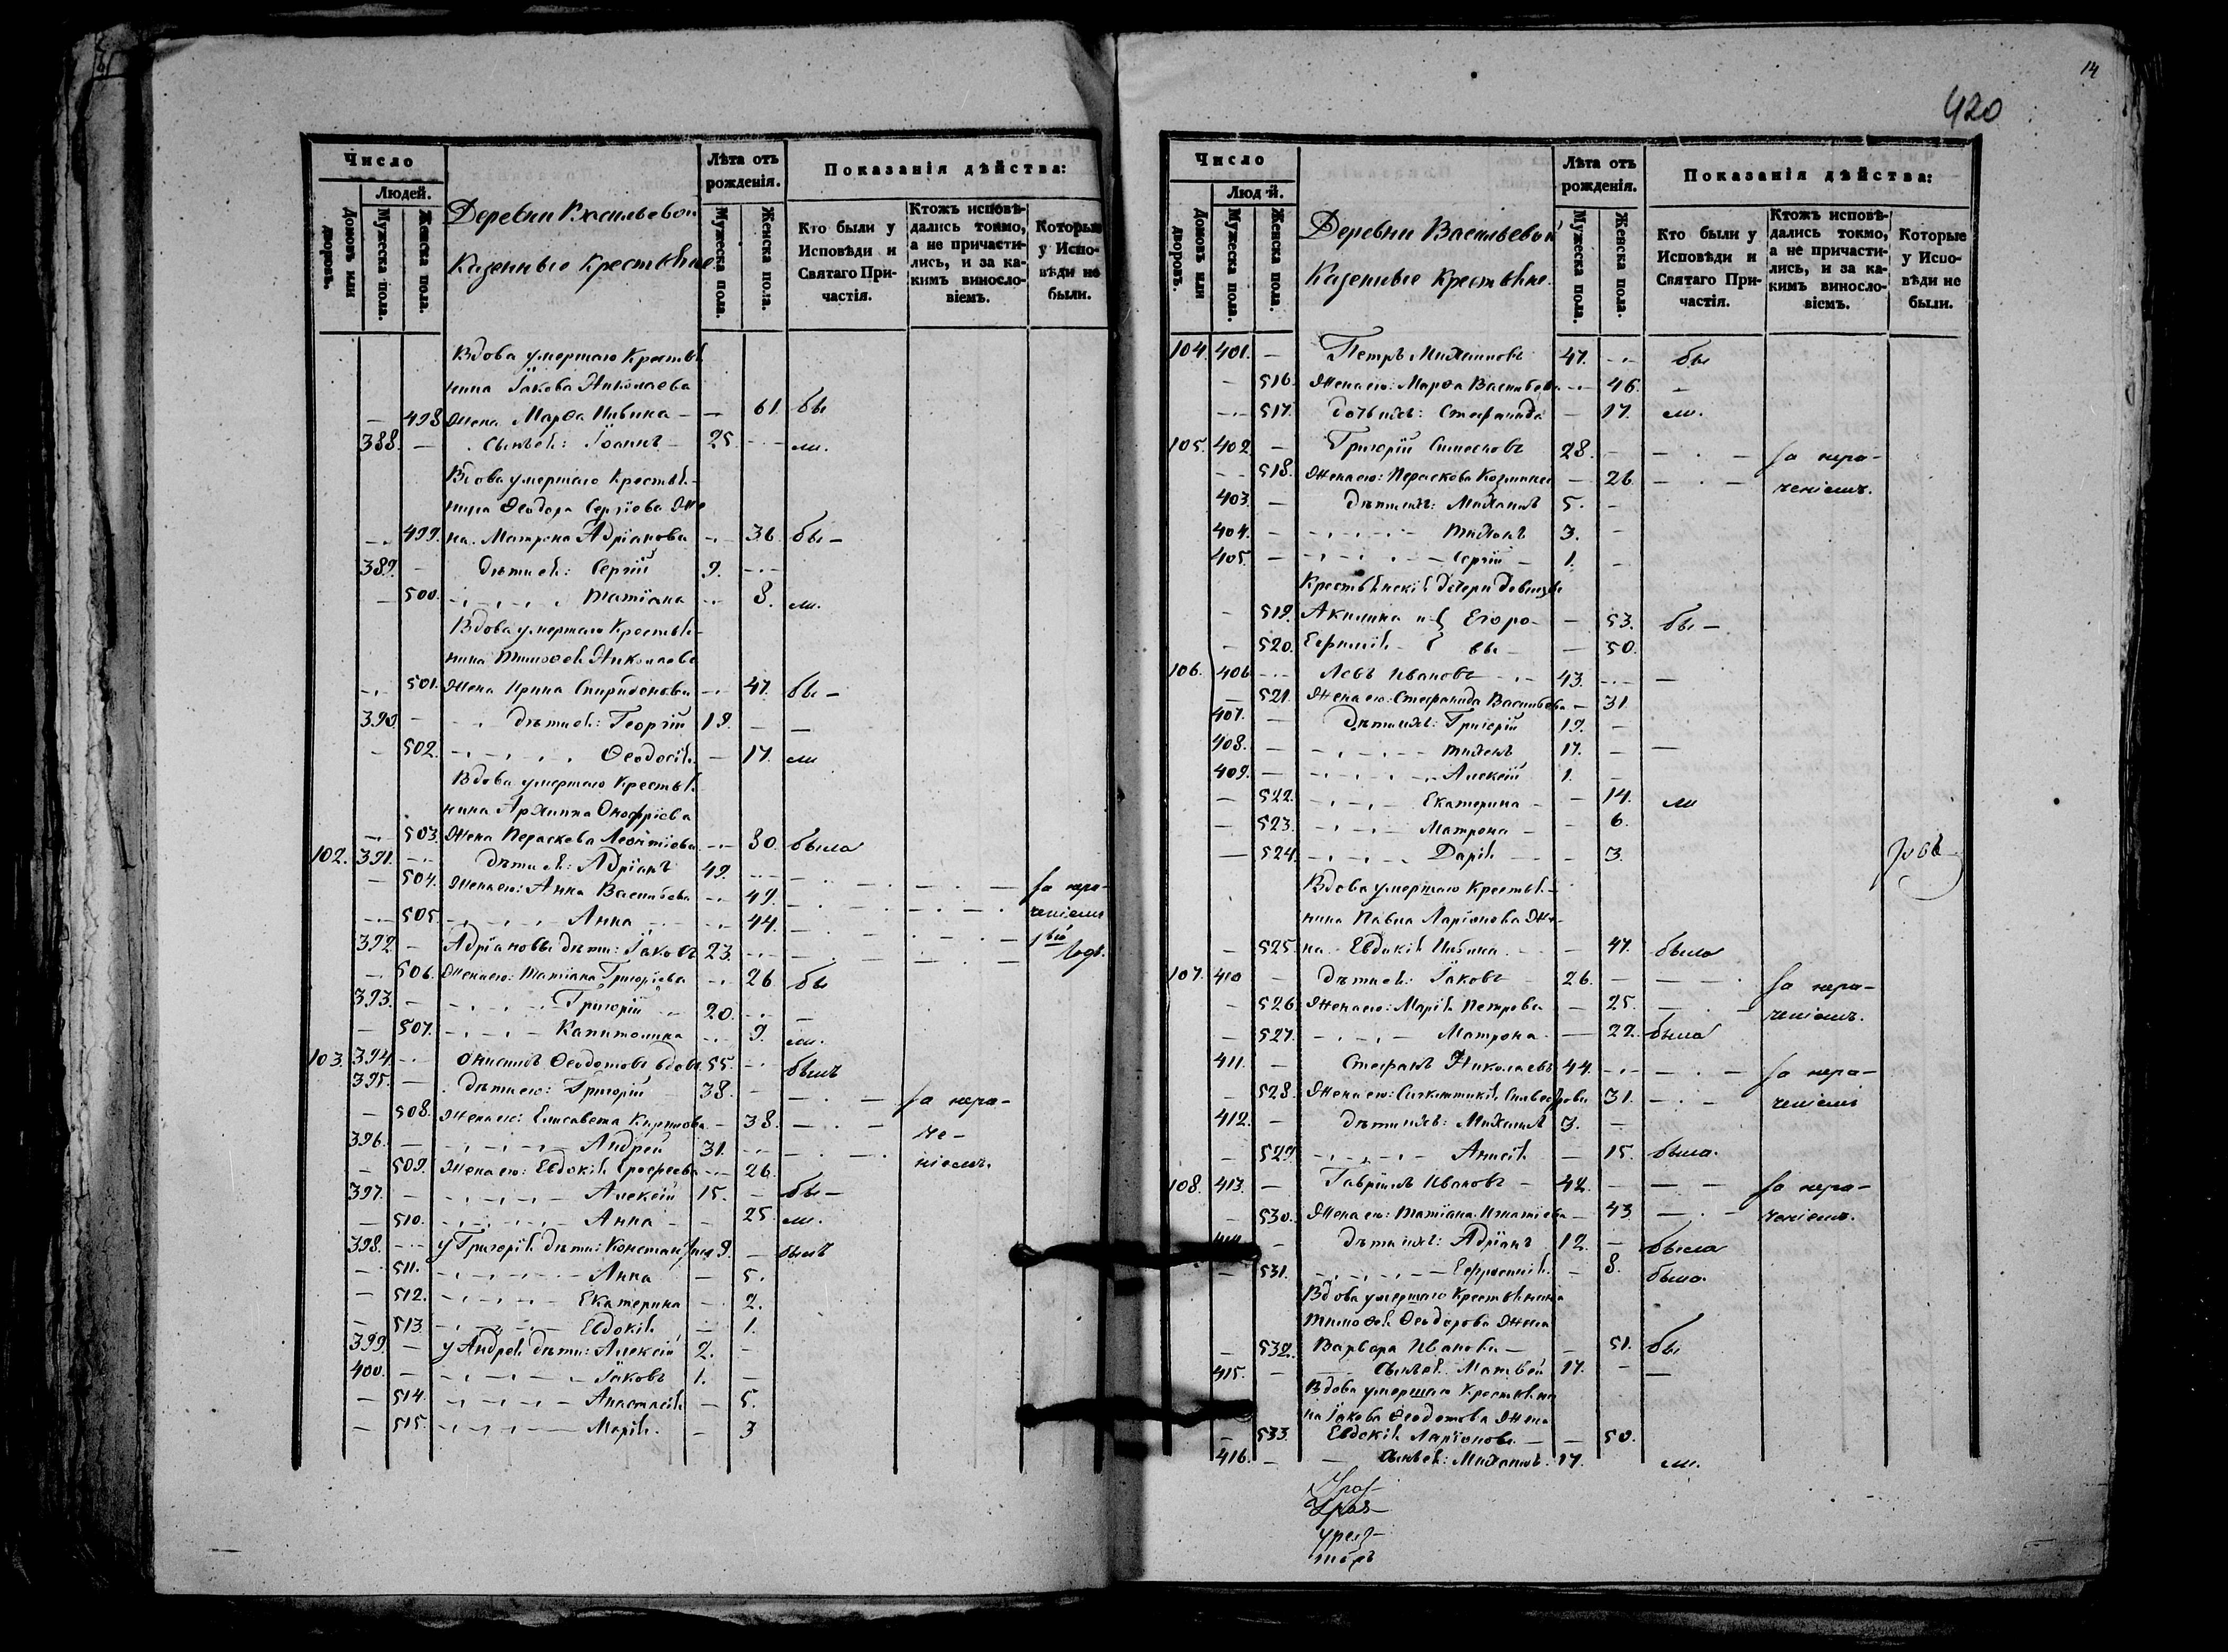 14
420
Число
Людей.
Домовъ или дворовъ.
Мужеска пола.
Женска пола.
Деревни Васильевой
Казенные крестьяне
Лѣта отъ рожденія.
Мужеска пола.
Женска пола.
Показанія дѣйства:
Кто были у Исповѣди и Святаго Причастія.
Ктожъ исповѣдались токмо, а не причастились, и за какимъ винословіемъ.
Которые у Исповѣди не были.
Вдова умершаго Крестья
нина Іакова Николаева
— 498. Жена Марѳа Ильина — — 61. бы
388. — Сынъ ея: Іоаннъ — 25. — ли.
Вдова умершаго Крестья-
нина Ѳеодора Сергіева Же
— 499. на. Матрона Адріанова — 36. бы —
389. — дѣти ея: Сергій 9. —
— 500. Татіана — 8. ли.
Вдова умершаго Крестья-
нина Тимоѳея Николаева
— 501. Жена Ирина Спиридонова — 47. бы —
390. — дѣти ея: Георгій 19. — —
— 502. Ѳеодосія — 17. ли
Вдова умершаго Крестья
нина Архипа Онофріева
— 503. Жена Параскева Леонтіева — 80. была
102. 391. — дѣти ея: Адріанъ 49. —
— 504. Жена его: Анна Васильева — 49. за нера-
— 505. Анна — 44. ченіемъ
392. — Адріановы дѣти: Іаковъ 23. — 1вый годъ.
— 506. Жена его: Татіана Григоріева — 26 бы
393. — Григорій 20. — —
— 507. Капитолина — 9. ли.
103. 394. — Онисимъ Ѳеодотовъ вдовъ 55. — былъ
395. — дѣти его: Григорій 38. — за нера-
— 508. Жена его: Елисавета Кирилова — 38. че-
396. — Андрей 31. — ніемъ.
— 509. Жена его: Евдокія Ерофеева — 26.
397. — Алексій 15. — бы —
— 510. Анна — 25. ли.
398. — у Григорія дѣти: Константинъ 9. — былъ
— 511. Анна — 5.
— 512. Екатерина — 2.
— 513. Евдокія — 1.
399. — у Андрея дѣти: Алексій 2. —
400. — Іаковъ 1. —
— 514. Анастасія — 5.
— 515. Марія. — 3
Число
Людей.
Домовъ или дворовъ.
Мужеска пола.
Женска пола.
Деревни Васильевой
Казенные крестьяне.
Лѣта отъ рожденія.
Мужеска пола.
Женска пола.
Показанія дѣйства:
Кто были у Исповѣди и Святаго Причастія.
Ктожъ исповѣдались токмо, а не причастились, и за какимъ винословіемъ.
Которые у Исповѣди не были.
104. 401. — Петръ Михаиловъ 47. — бы
— 516. Жена его: Марѳа Васильева — 46. —
— 517. дочь ихъ: Стефанида — 17. ли.
105. 402. — Григорій Симеоновъ 28. — за нера-
— 518. Жена его: Параскева Козмина — 26. ченіемъ.
403. — дѣти ихъ: Михаилъ 5. —
404. — Тихонъ 3. —
405. — Сергій 1. —
Крестьянскія дочери девицы
— 519. Акилина и Егоро- — 53. бы —
— 520. Евфимія вы — — 50.
106. 406 — Левъ Ивановъ 43. — —
— 521. Жена его: Стефанида Васильева — 31
407. — дѣти ихъ: Григорій 19. —
408. — Тихонъ 17. — —
409. — Алексій 1. —
— 522. Екатерина — 14. ли
— 523. Матрона — 6.
— 524. Дарія — 3.
Вдова умершаго Крестья-
нина Павла Ларіонова Же-
— 525. на Евдокія Ильина. — 47. была
107. 410 — дѣти ея: Іаковъ 26. — за нера-
— 526. Жена его: Марія Петрова — 25. ченіемъ.
— 527. Матрона — 22. была
411. — Стефанъ Николаевъ 44. — за нера-
— 528. Жена его: Синклитикія Сильвестрова 31. ченіемъ
412. — дѣти ихъ: Михаилъ 3. —
— 529. Анисія — 15. была.
108. 413. — Гавріилъ Ивановъ — 42. — за нера-
— 530. Жена его: Татіана Игнатіева — 43 ченіемъ.
414. — дѣти ихъ: Адріанъ 12. —
— 531. Евфросинія. — 8. была.
Вдова умершаго Крестьянина
Тимоѳея Ѳеодорова Жена
— 532. Варвара Иванова — — 51. бы
415. — Сынъ ея: Матвей 17. — —
Вдова умершаго Крестьяни
на Іакова Ѳеодотова Жена
— 533. Евдокія Ларіонова — — 50.
416. — Сынъ ея: Михаилъ. 17. ли.